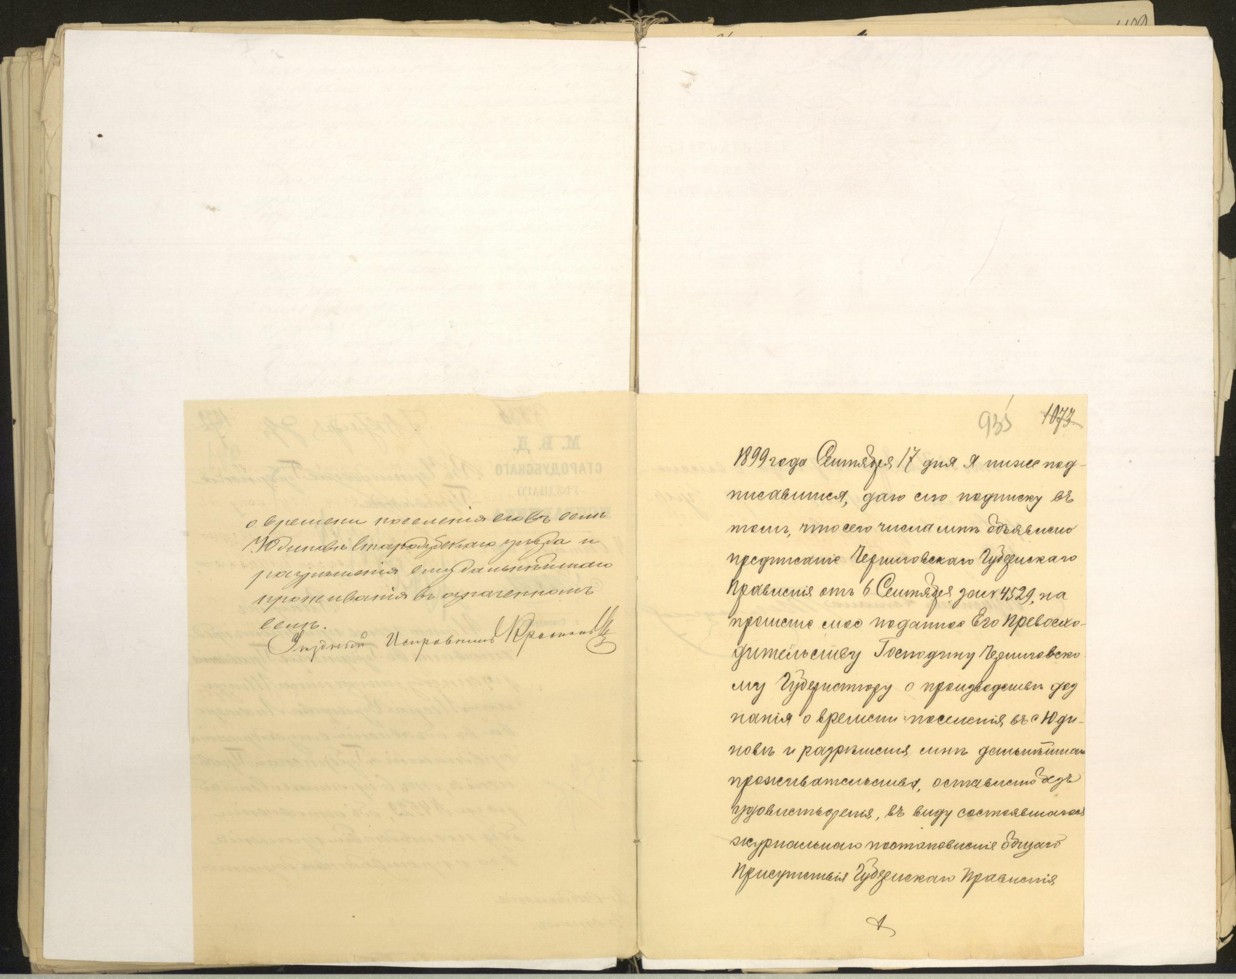 о времени поселенія его въ селѣ
Юдиновѣ Стародубскаго уѣзда и
разрѣшенія ему дальнѣйшаго
проживанія въ означенномъ
селѣ.
Уѣздный Исправникъ
935
1073
1899 года Сентября 17 дня Я нижепод-
писавшійся, даю сію подписку въ
томъ, что сего числа мнѣ объявлено
предписаніе Черниговскаго Губернскаго
Правленія отъ 6 Сентября за № 4529, на
прошеніе мое поданное Его Превосхо-
дительству Господину Черниговско-
му Губернатору о производствѣ доз
нанія о времени поселенія въ с Юди-
новѣ и разрѣшенія мнѣ дальнѣйшаго
проживательства, оставлено безъ
удовлетворенія, въ виду состоявшагося
журнальнаго постановленія Общаго
Присутствія Губернскаго Правленія